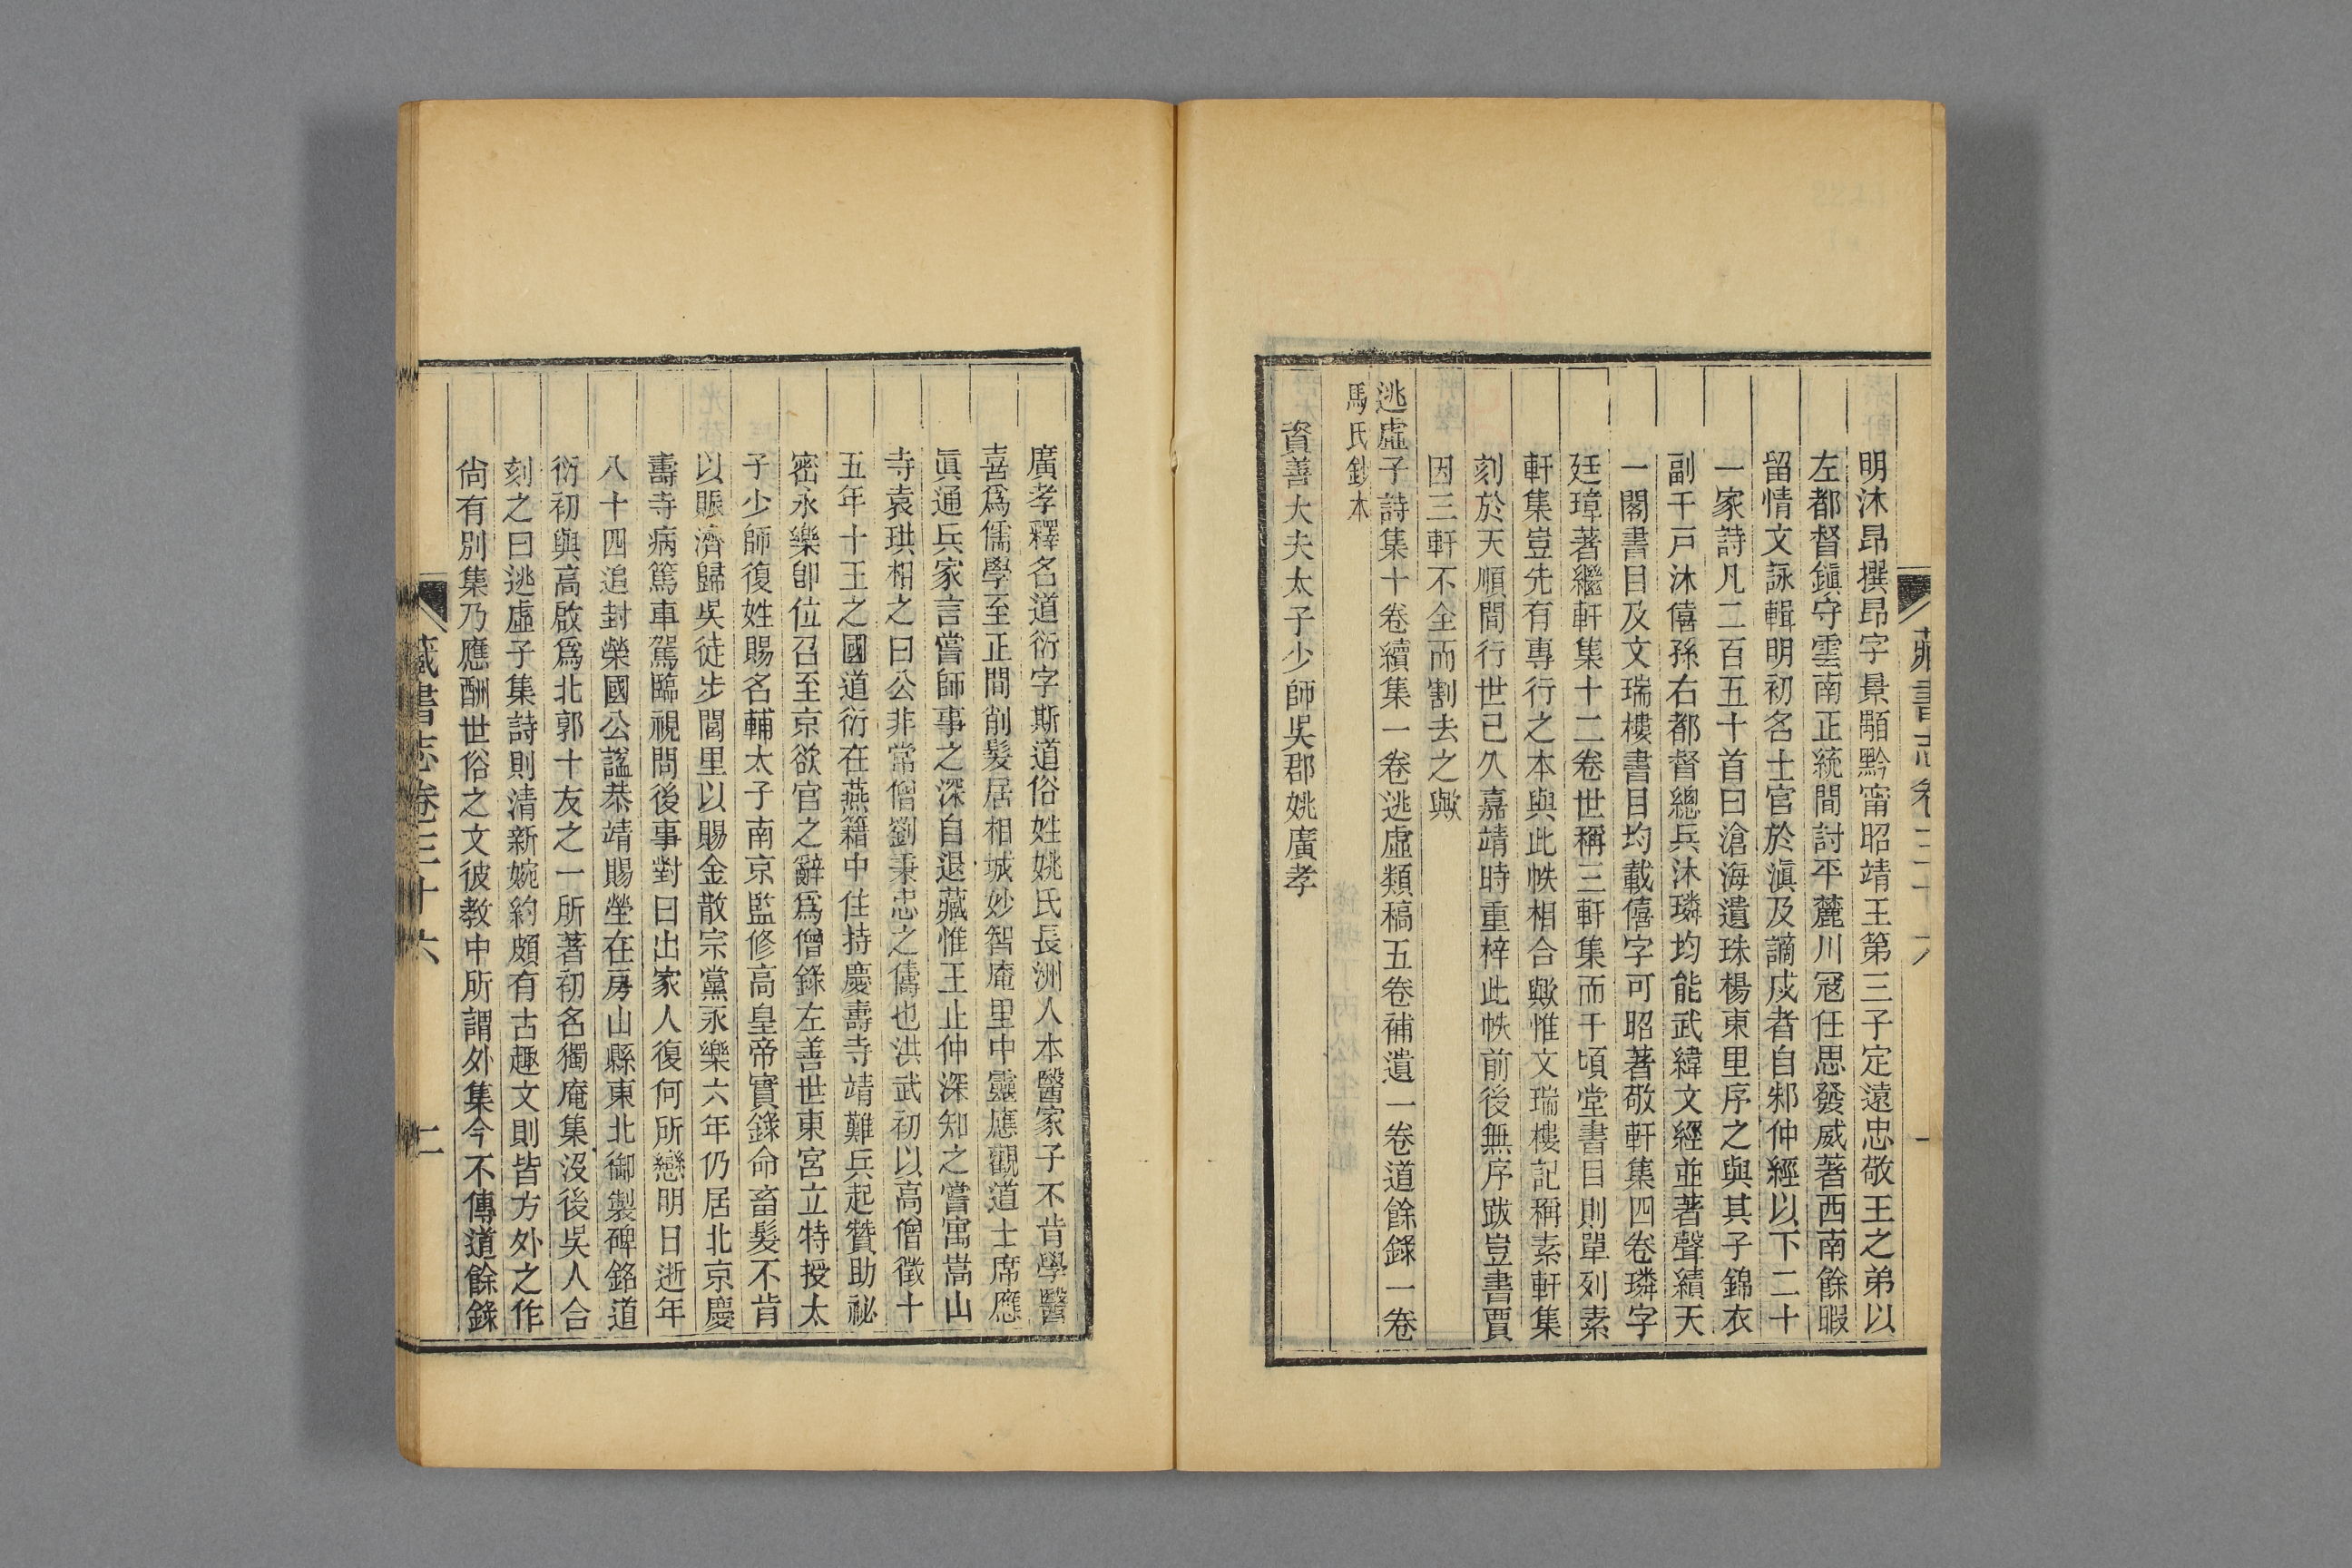 明沐昂撰昂字景顒黔甯昭靖王第三子定遠忠敬王之弟以
左都督鎮守雲南正統間討平麓川冦任思發威著西南餘暇
留情文詠輯明初名士官於滇及謫戍者自邾仲經以下二十
一家詩凡二百五十首曰滄海遺珠楊東里序之與其子錦衣
副千戸沐僖孫右都督總兵沐璘均能武緯文經並著聲績天
一閣書目及文瑞樓書目均載僖字可昭著敬軒集四卷璘字
廷璋著繼軒集十二卷世稱三軒集而千頃堂書目則單列素
軒集豈先有專行之本與此帙相合歟惟文瑞樓記稱素軒集
刻於天順間行世已久嘉靖時重梓此帙前後無序跋豈書賈
因三軒不全而割去之歟
逃虛子詩集十卷續集一卷逃虛類稿五卷補遺一卷道餘錄一卷
馬氏鈔本
資善大夫太子少師吳郡姚廣孝
廣孝釋名道衍字斯道俗姓姚氏長洲人本醫家子不肯學醫
喜爲儒學至正間削髮居相城妙智庵里中靈應觀道士席應
眞通兵家言嘗師事之深自退藏惟王止仲深知之嘗寓嵩山
寺袁珙相之曰公非常僧劉秉忠之儔也洪武初以高僧徵十
五年十王之國道衍在燕籍中住持慶壽寺靖難兵起贊助祕
密永樂卽位召至京欲官之辭爲僧錄左善世東宮立特授太
子少師復姓賜名輔太子南京監修高皇帝實錄命畜髮不肯
以賑濟歸吳徒步閭里以賜金散宗黨永樂六年仍居北京慶
壽寺病篤車駕臨視問後事對曰出家人復何所戀明日逝年
八十四追封榮國公謚恭靖賜塋在房山縣東北御製碑銘道
衍初與高啟爲北郭十友之一所著初名獨庵集沒後吳人合
刻之曰逃虛子集詩則清新婉約頗有古趣文則皆方外之作
尙有別集乃應酬世俗之文彼教中所謂外集今不傳道餘錄
藏書志卷三十六 二